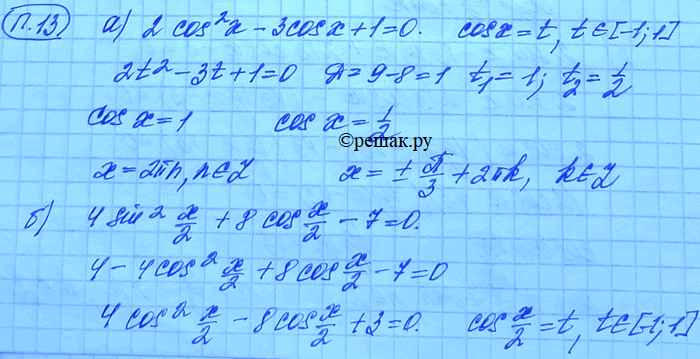 П.13 а) 2 cos²x − 3cosx + 1 = 0. cosx = t, t ∈ [-1; 1]
2t² − 3t + 1 = 0 Д = 9 − 8 = 1 t₁ = 1; t₂ = 1/2
cos x = 1 cos x = 1/2
©решак.ру
x = 2πn, n ∈ Z x = ± π/3 + 2πk, k ∈ Z
б) 4 sin² x/2 + 8 cos x/2 − 7 = 0.
4 − 4cos² x/2 + 8cos x/2 − 7 = 0
4 cos² x/2 − 8cos x/2 + 3 = 0. cos x/2 = t, t ∈ [-1; 1]